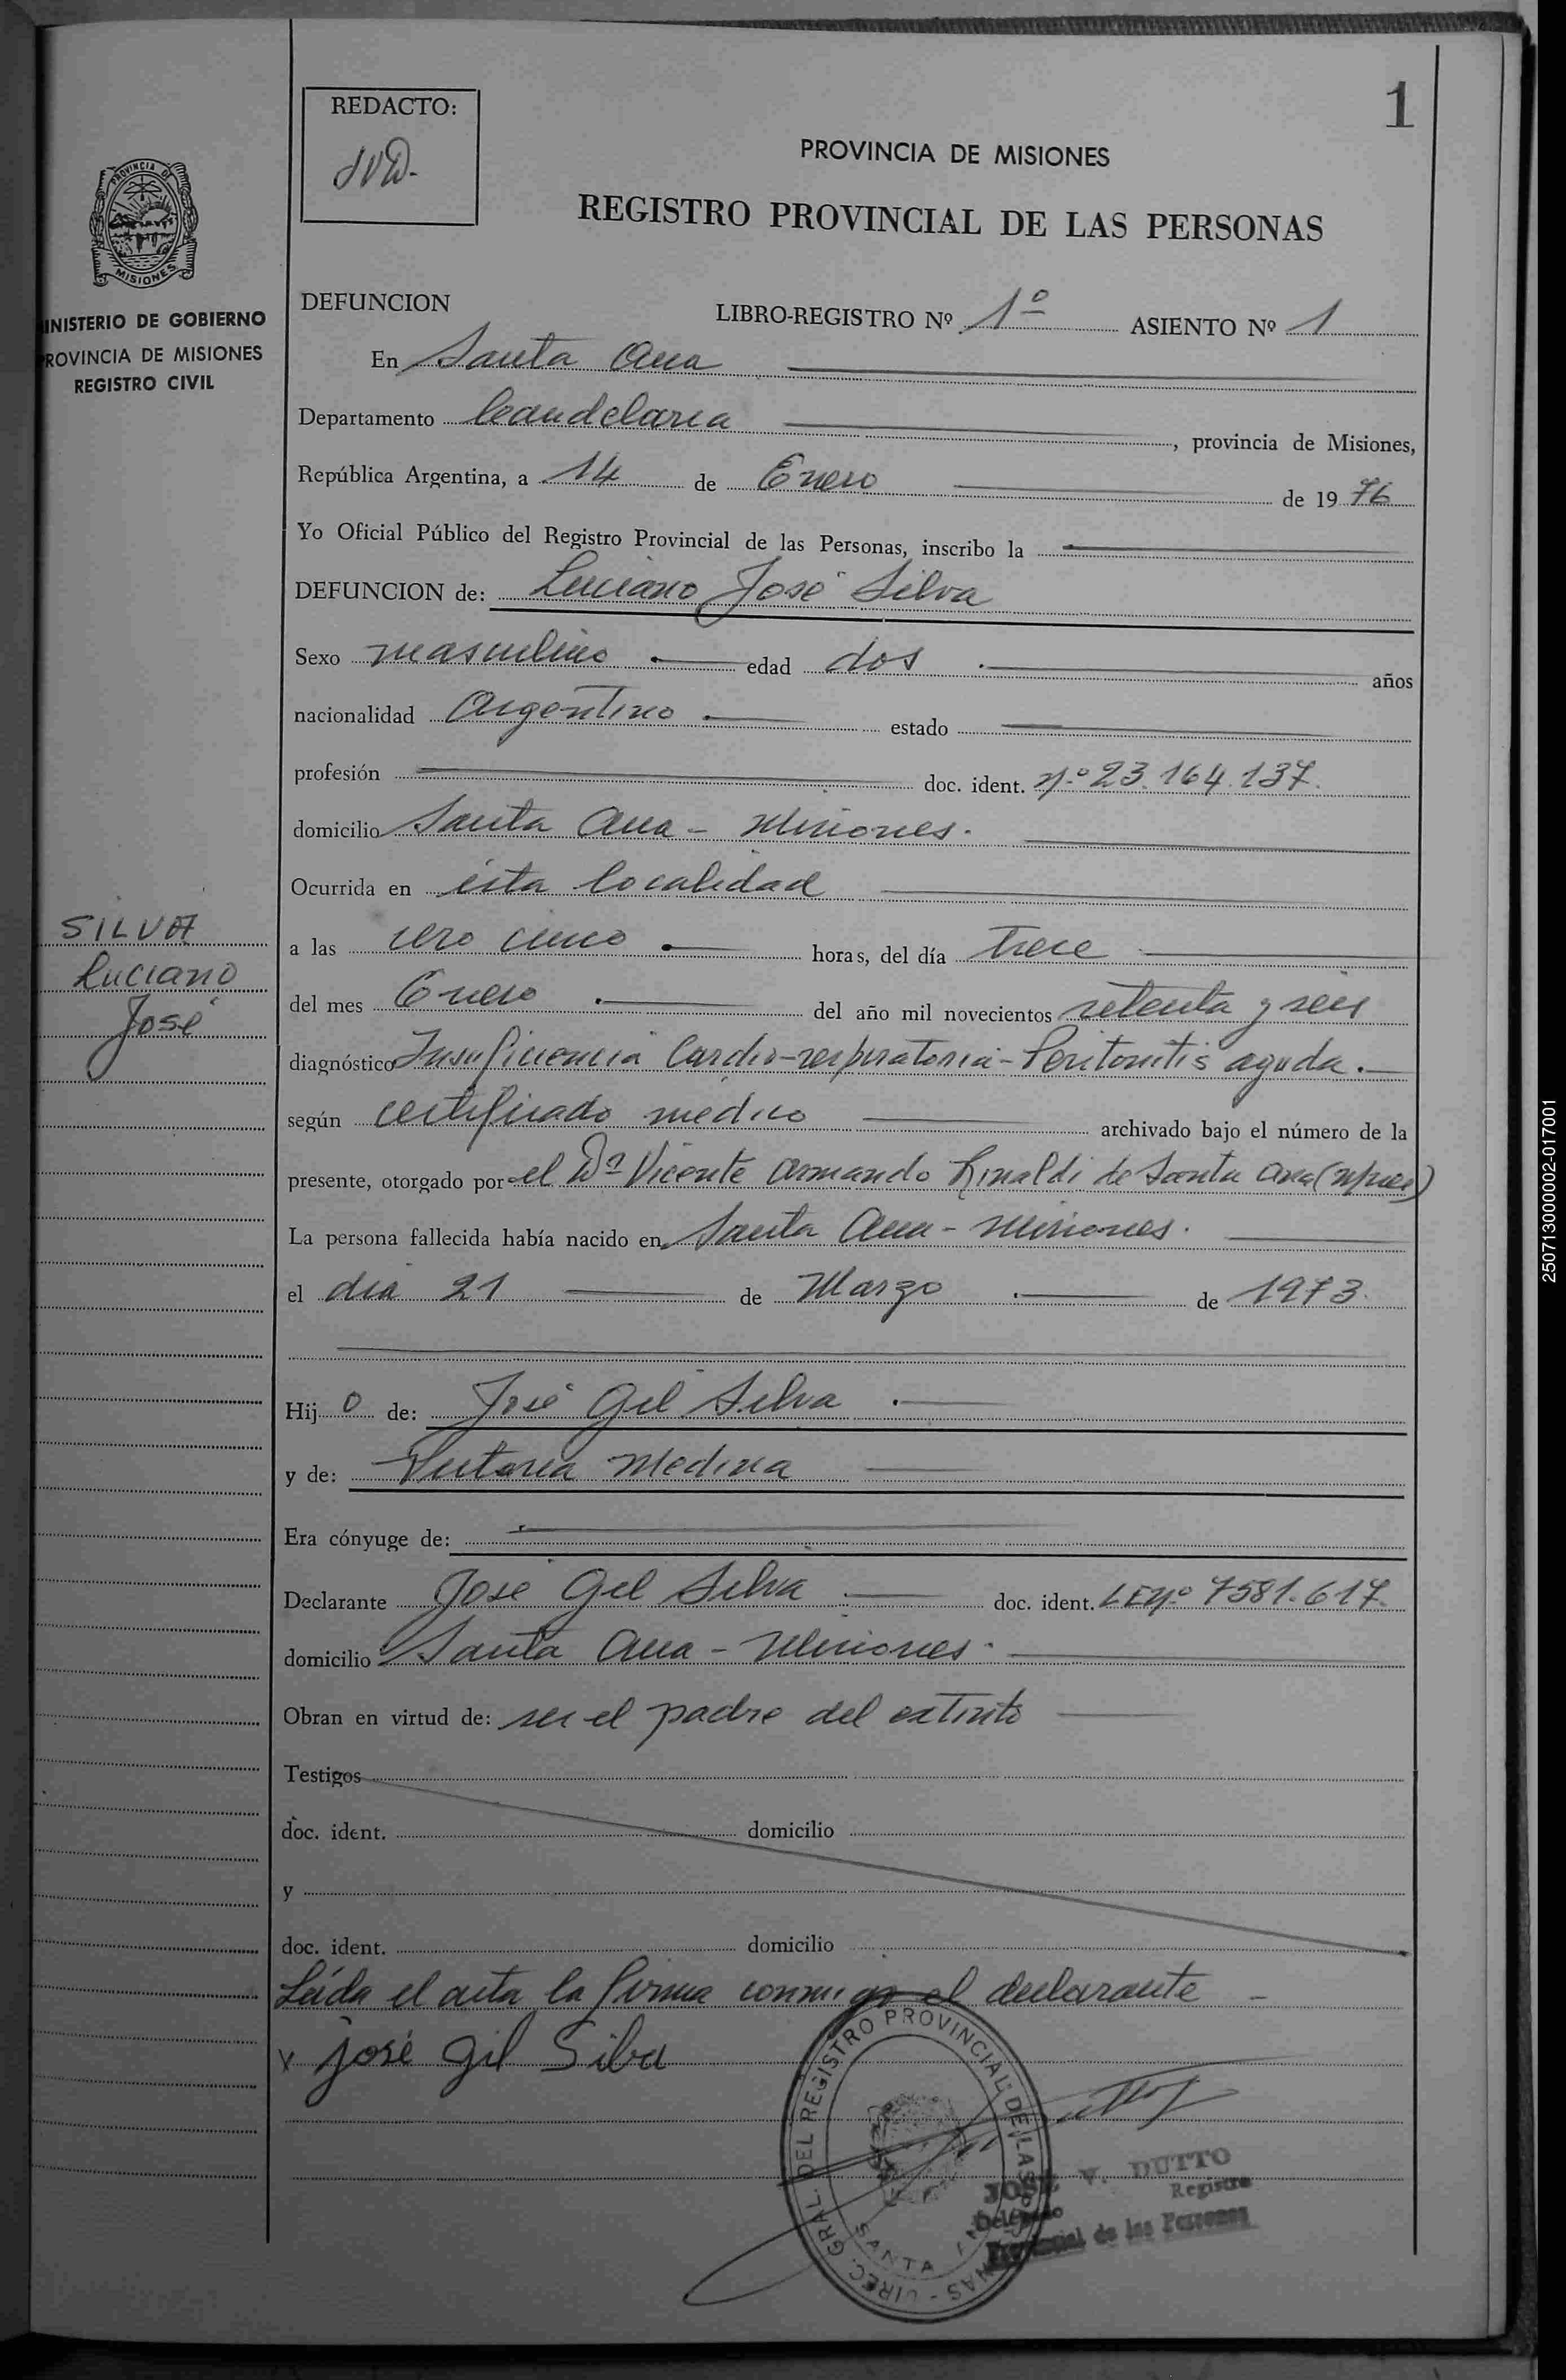 1
REDACTO:
JVD.
PROVINCIA DE MISIONES
REGISTRO PROVINCIAL DE LAS PERSONAS
PROVINCIA DE
MISIONES
INISTERIO DE GOBIERNO
ROVINCIA DE MISIONES
REGISTRO CIVIL
DEFUNCION LIBRO-REGISTRO Nº 1º ASIENTO Nº 1
En Santa Ana
Departamento Candelaria, provincia de Misiones,
República Argentina, a 14 de Enero de 1976
Yo Oficial Público del Registro Provincial de las Personas, inscribo la
DEFUNCION de: Luciano José Silva
Sexo masculino edad dos años
nacionalidad Argentino estado
profesión doc. ident. Nº 23.164.137.
domicilio Santa Ana - Misiones.
Ocurrida en ésta localidad
SILVA
Luciano
José
a las cero cinco horas, del día trece
del mes Enero del año mil novecientos setenta y seis
diagnóstico Insuficiencia Cardio-respiratoria - Peritonitis aguda.
según certificado medico archivado bajo el número de la
presente, otorgado por el Dr Vicente Armando Rinaldi de Santa Ana
La persona fallecida había nacido en Santa Ana - Misiones.
el dia 21 de Marzo de 1973.
Hijo de: José Gil Silva
y de: Victoria Medina
Era cónyuge de:
Declarante José Gil Silva doc. ident. LE Nº 7581.617.
domicilio Santa Ana - Misiones.
Obran en virtud de: ser el padre del extinto
Testigos
doc. ident. domicilio
y
doc. ident. domicilio
Leída el acta la firma conmigo el declarante
x josé gil Silva
DIREC. GRAL. DEL REGISTRO PROVINCIAL DE LAS PERSONAS
SANTA ANA
JOSE V. DUTTO
Delegado Registro
Provincial de las Personas
2507130000002-017001